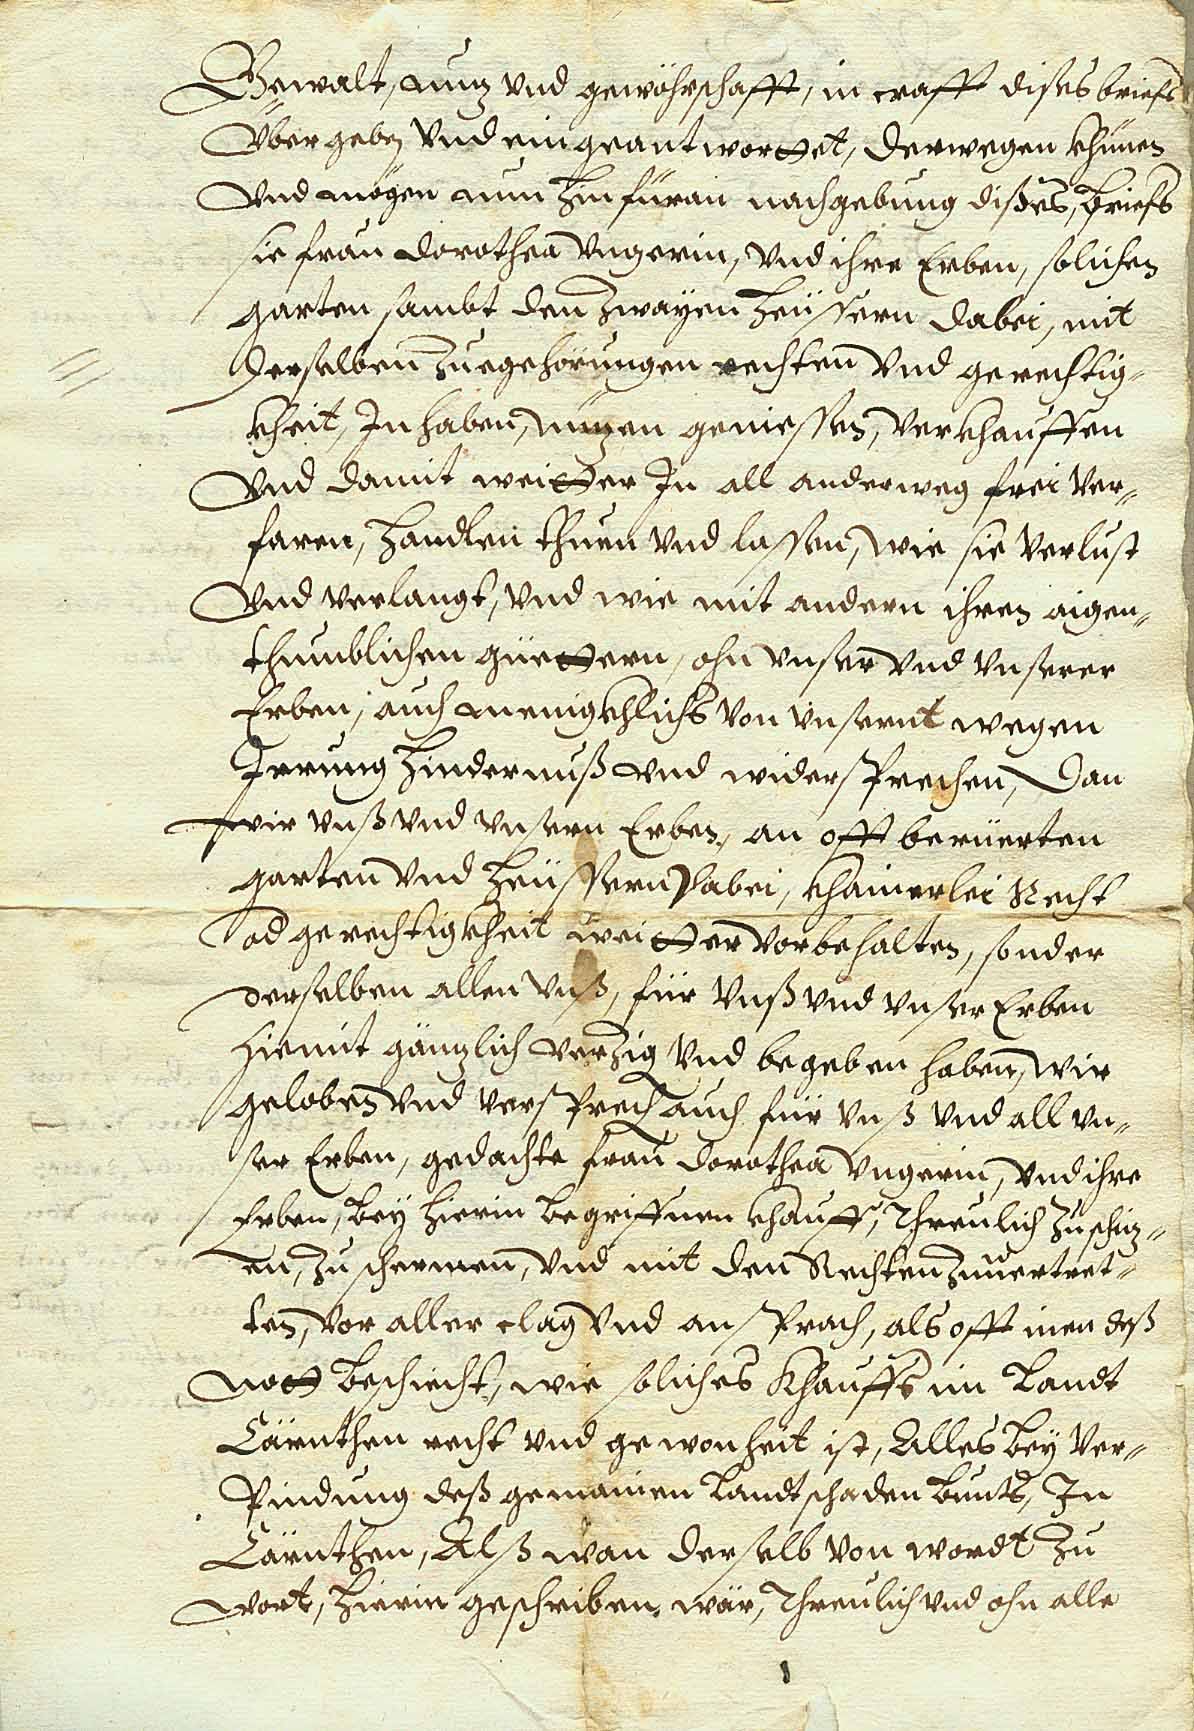 Gewalt, nutz vnd gewöhrschafft, in crafft dises briefs
Vbergeben vnd eingeantworttet, derwegen khünen
vnd mögen nun hinfüran nachgebung dises briefs
sie frau Dorothea Vngerin, vnd ihre Erben, solichen
garten sambt den zwayen heüssern dabei, mit
derselben zuegehörungen rechten vnd gerechtig-
kheit, Inhaben, nutzen geniessen, verkhauffen
vnd damit weitter In all anderweg frei ver-
faren, handlen thuen vnd lassen, wie sie verlust
vnd verlangt, vnd wie mit andern ihren aigen-
thumblichen güettern, ohn vnser vnd vnserer
Erben, auch menigkhlichs von vnsernt wegen
Irrung hindernuß vnd widersprechen, Dan
wir vnß vnd vnsern Erben, an offt berüerten
garten vnd heüssern dabei, khainerlei Recht
od gerechtigkheit weitter vorbehalten, sonder
derselben allen vnß, für vnß vnd vnser Erben
hiemit gäntzlich verzig vnd begeben haben, Wir
geloben vnd versprech auch für vnß vnd all vn-
ser Erben, gedachte frau Dorothea Vngerin, vnd ihre
Erben, bey hierin begriffnen khauff, threulich zuschüz-
en, zu schermen, vnd mit den Rechten zuuertret-
ten, vor aller clag vnd ansprach, als offt inen deß
nott beschiecht, wie soliches khauffs im Landt
Cärnthen recht vnd gewonheit ist, Alles bey ver-
Pindung deß gemainen Landtschaden bundts, In
Cärnthen, Alß wan derselb von wordt zu
wort, hierin geschriben wär, threulich vnd ohn alle